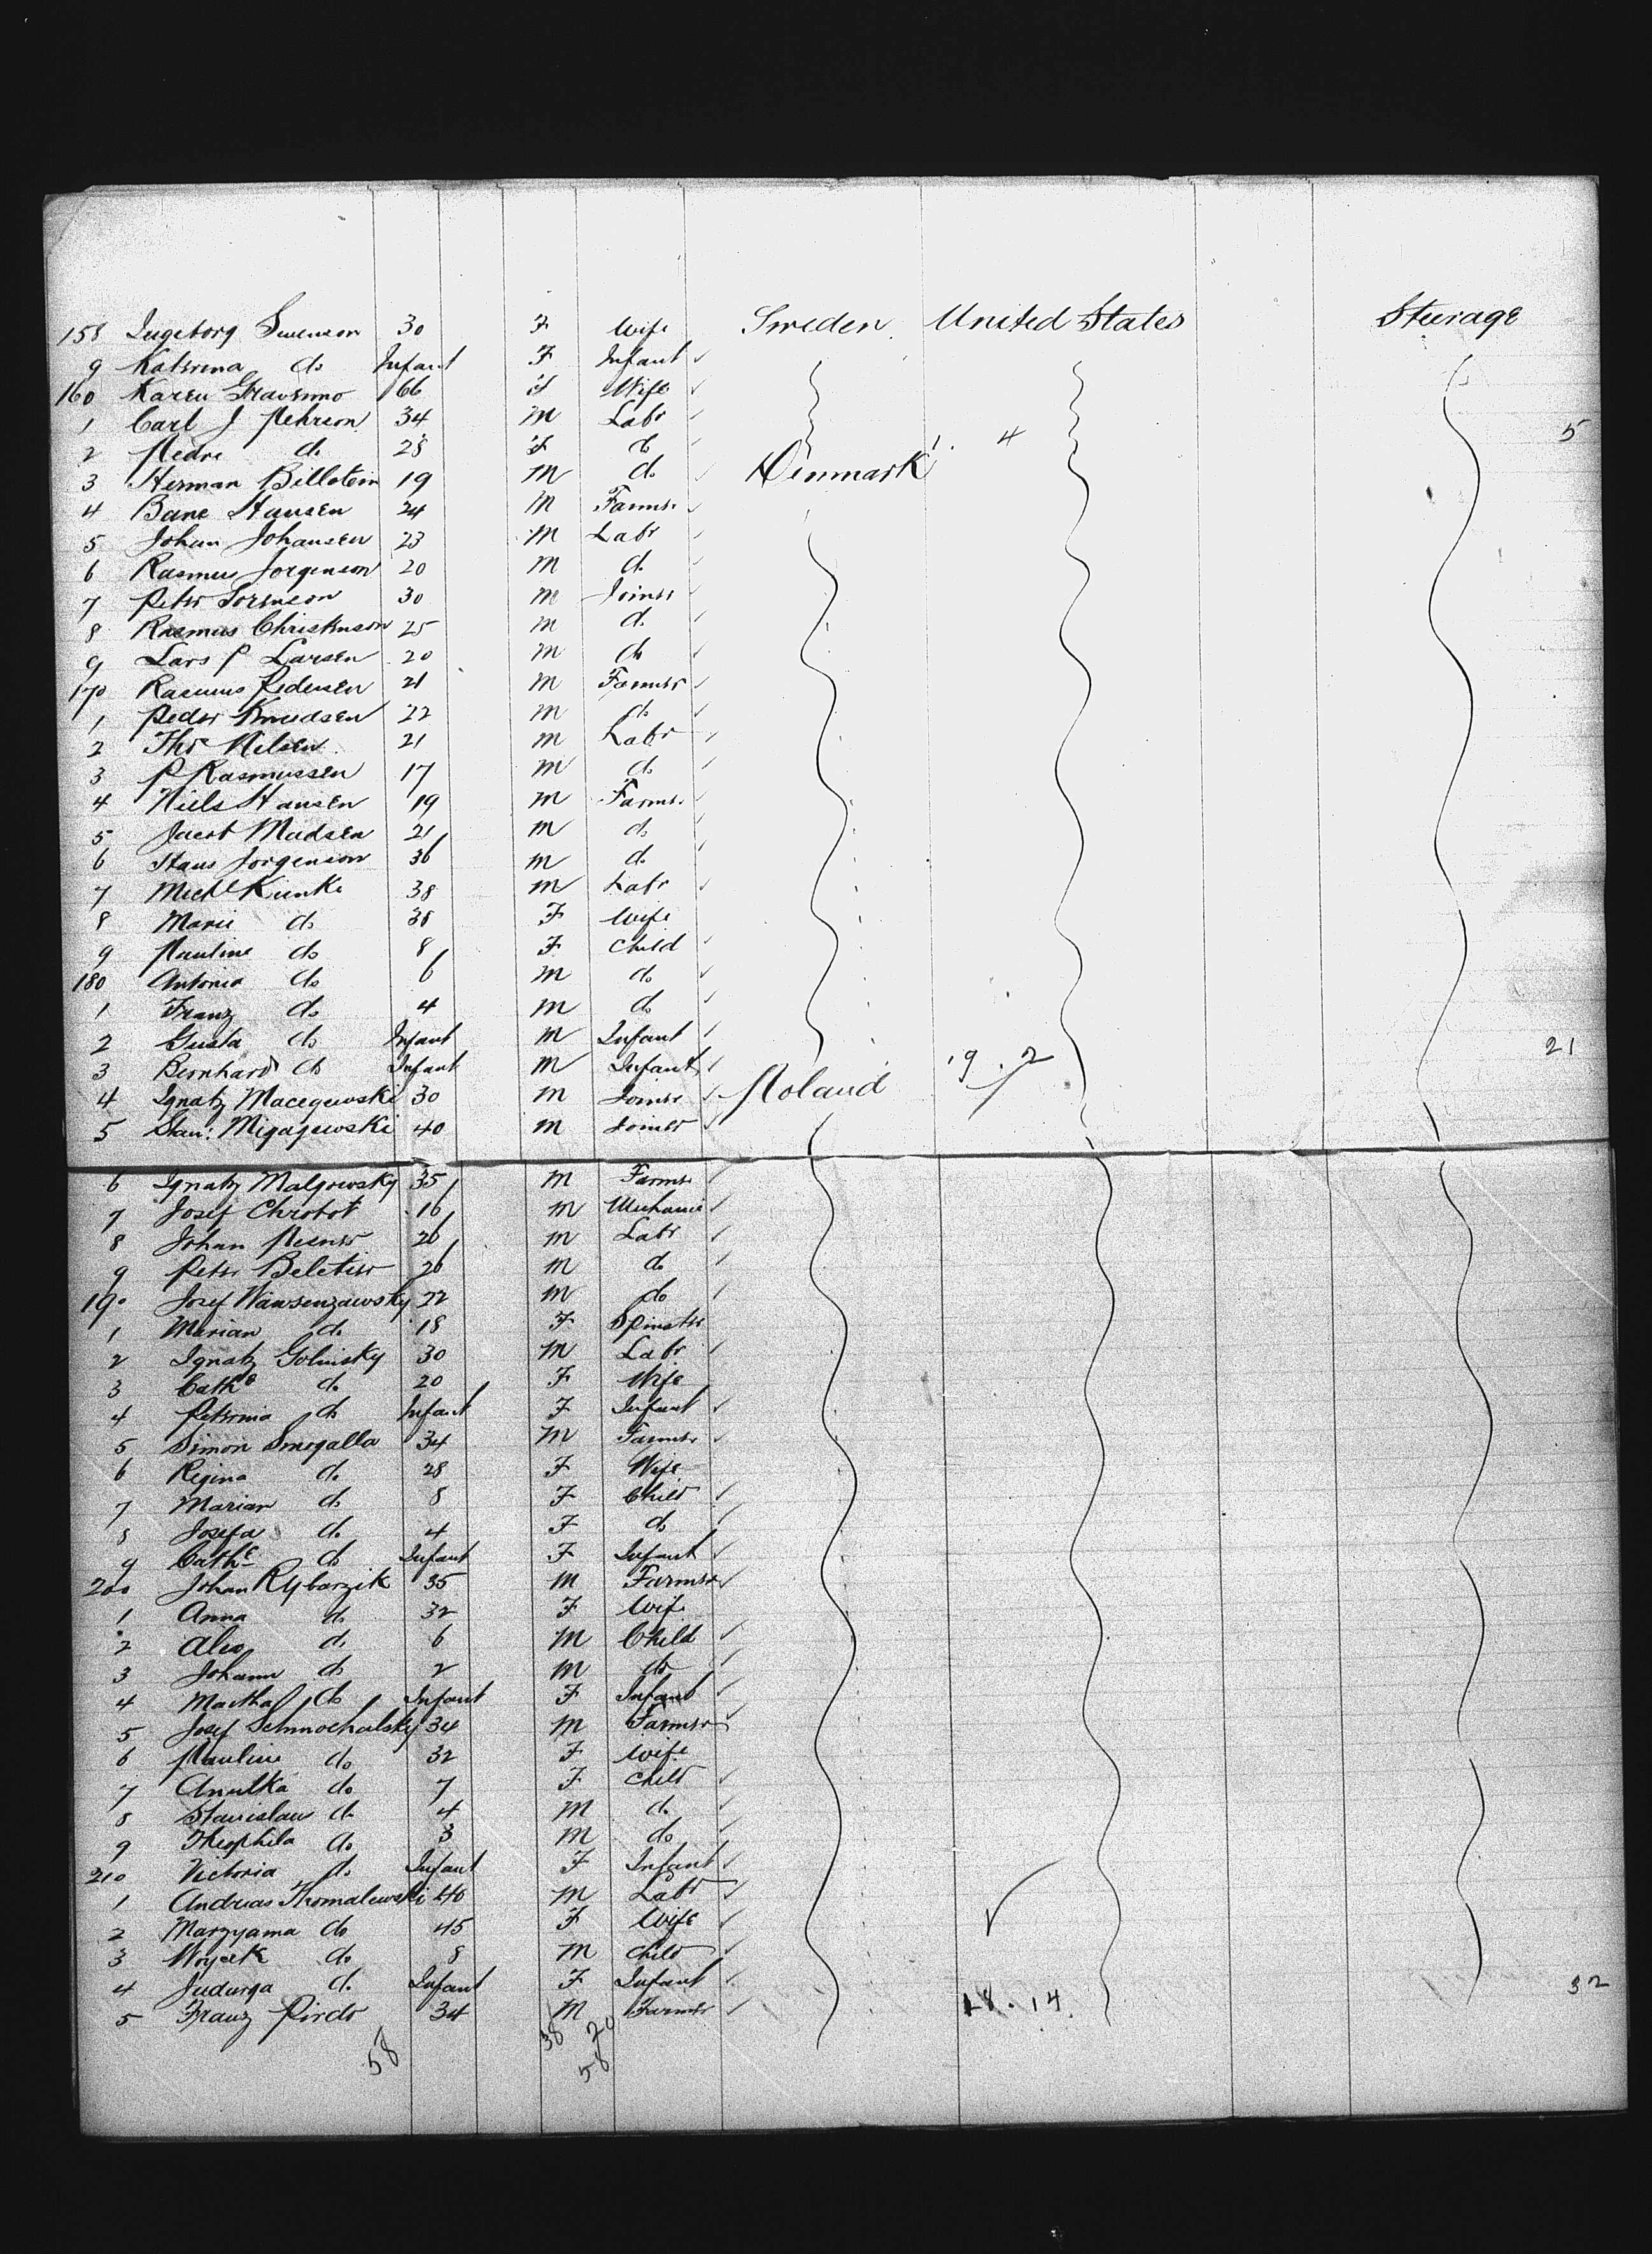 158 Ingeborg Swenson 30 F Wife Sweden United States Steerage
9 Katrina do Infant F Infant
160 Karen 66 F Wife
1 Carl J Pehrson 34 M Labr 5
2 Pedre do 28 F do 1. 4
3 Herman Billstein 19 M do Denmark
4 Bane Hansen 24 M Farmer
5 Johan Johansen 23 M Labr
6 Rasmus Jorgenson 20 M do
7 Peter Sorenson 30 M Joiner
8 Rasmus Christenson 25 M do
9 Lars P Larsen 20 M do
170 Rasmus Pedersen 21 M Farmer
1 Peder Knudsen 22 M do
2 Thr Nelsen 21 M Labr
3 P Rasmussen 17 M do
4 Niels Hansen 19 M Farmer
5 Jacob Madsen 21 M do
6 Hans Jorgenson 36 M do
7 Michl Kunke 38 M Labr
8 Marie do 38 F Wife
9 Pauline do 8 F Child
180 Antonia do 6 M do
1 Franz do 4 M do
2 Gusta do Infant M Infant 21
3 Bernhard do Infant M Infant 19. 2
4 Ignatz Macegewski 30 M Joiner Poland
5 Stan: Migagewski 40 M Joiner
6 Ignatz Malgowsky 35 M Farmer
7 Josef Chrobot 16 M Mechanic
8 Johan Pesner 26 M Labr
9 Peter Beletier 26 M do
190 Josef Wansenzawsky 22 M do
1 Marian do 18 F Spinster
2 Ignatz Golinsky 30 M Labr
3 Cathe do 20 F Wife
4 Petronia do Infant F Infant
5 Simon Smogalla 34 M Farmer
6 Regina do 28 F Wife
7 Marian do 8 F Child
8 Josefa do 4 F do
9 Cathe do Infant F Infant
200 Johan Rybarzik 35 M Farmer
1 Anna do 32 F Wife
2 Alex do 6 M Child
3 Johann do 2 M do
4 Martha do Infant F Infant
5 Josef Schmochalsky 34 M Farmer
6 Pauline do 32 F Wife
7 Anulka do 7 F Child
8 Stanislaus do 4 M do
9 Theophila do 3 M do
210 Victoria do Infant F Infant
1 Andreas Thomalewski 40 M Labr
2 Marzyama do 45 F Wife
3 Woycek do 8 M Child
4 Judwiga do Infant F Infant 32
5 Franz Pirdo 34 M Farmer 18. 14
58 38 20
58